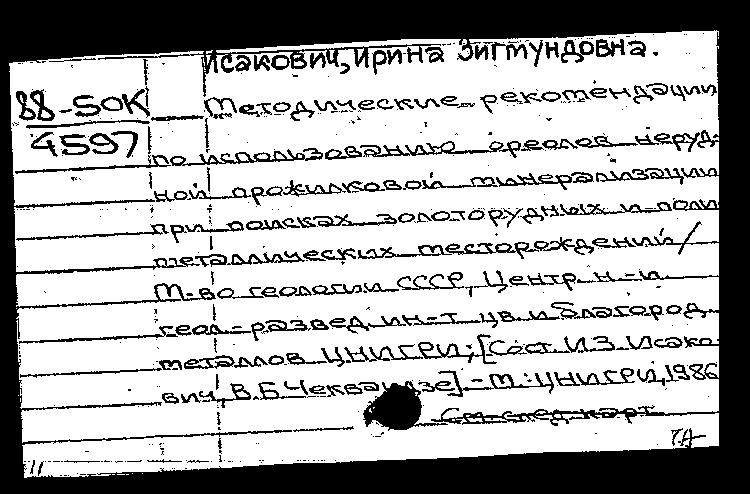 Исакович, Ирина Зигмундовна.
88-50К Методические рекомендации
4597
по использованию ореолов неруд-
ной прожилковой минерализации
при поисках золоторудных и поли
металлических месторождений/
М-во геологии СССР, Центр. н.-и.
геол.-развед. ин-т цв. и благород.
металлов ЦНИГРИ; [Сост. И.З. Исако
вич, В.Б. Чекваидзе]. - М.: ЦНИГРИ, 1986
См. след. карт.